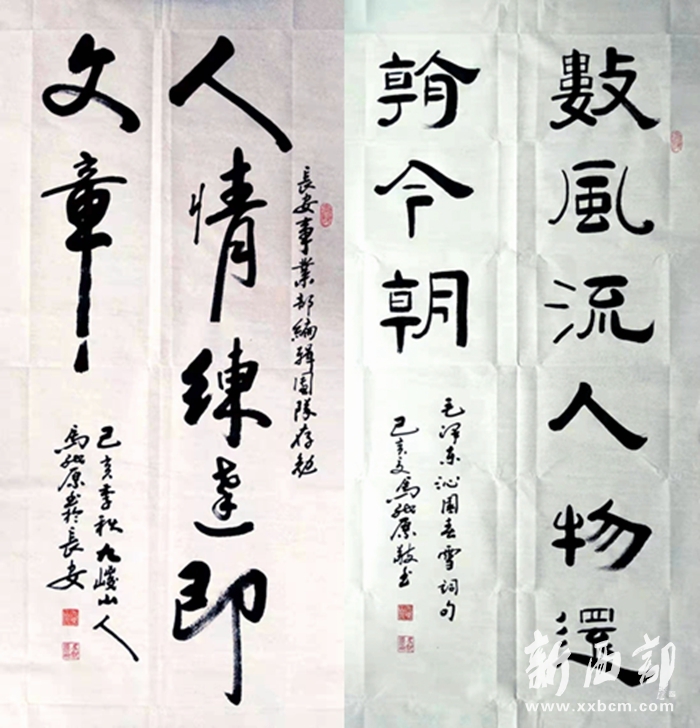 人情練達即
文章
長安事業部編輯團隊存勉
己亥季秋九嵕山人
馬 原书於長安
數風流人物還
䀍今朝
毛泽东沁園春雪詞句
己亥 馬 原敬书
新西部
www.xxbcm.com